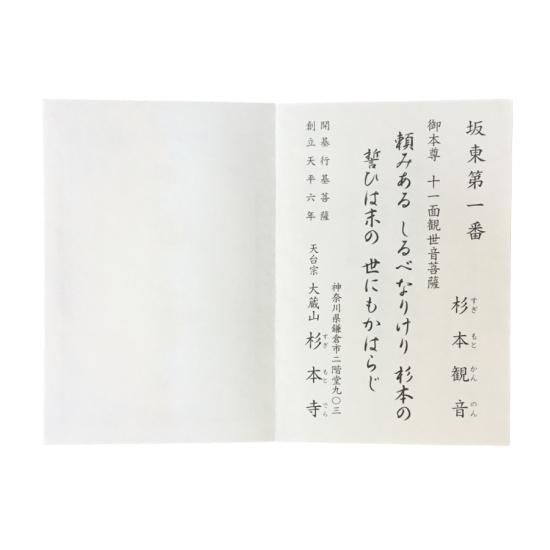 坂東第一番
杉本観音
すぎもとかんのん
御本尊 十一面観世音菩薩
頼みある しるべなりけり 杉本の
誓ひは末の 世にもかはらじ
開基行基菩薩
創立天平六年
神奈川県鎌倉市二階堂九〇三
天台宗 大蔵山 杉本寺
すぎもとでら